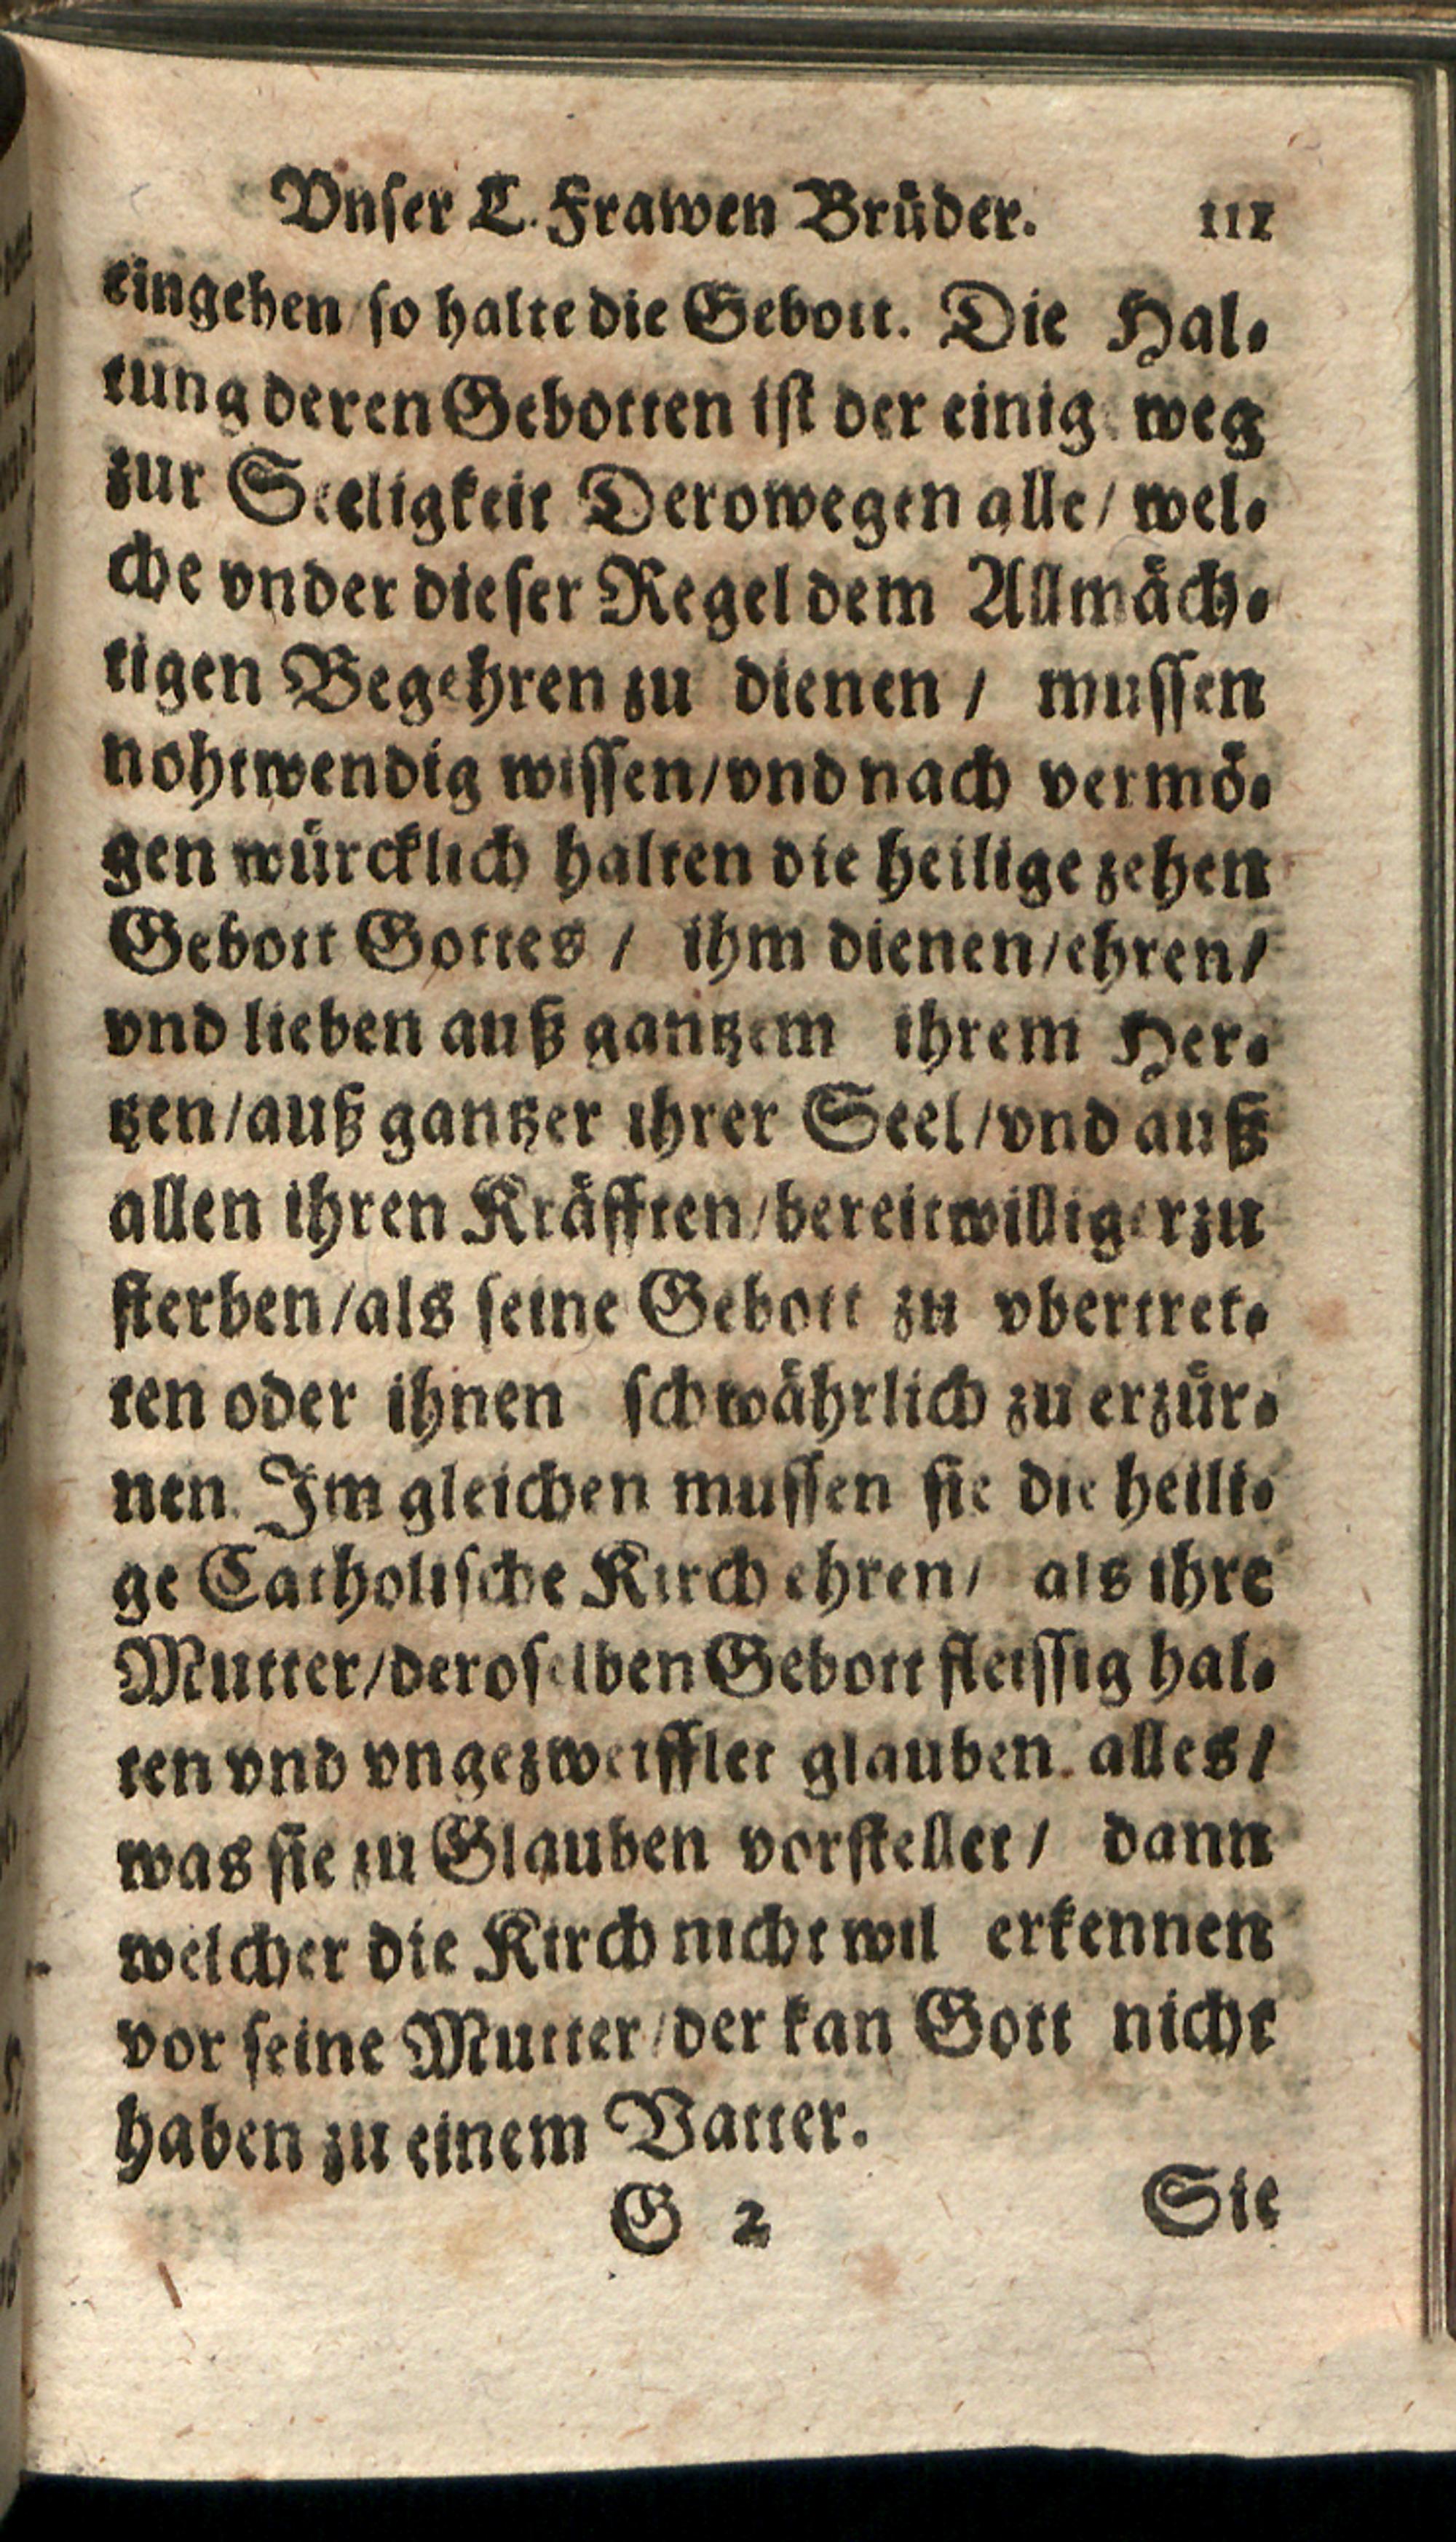 Vnser L. Frawen Brüder. 111
eingehen so halte die Gebott. Die Hal-
tung deren Gebotten ist der einig weg
zur Seeligkeit Derowegen alle / wel-
che vnder dieser Regel dem Allmäch-
tigen Begehren zu dienen / mussen
nohtwendig wissen/vnd nach vermö-
gen würcklich halten die heilige zehen
Gebott Gottes / ihm dienen/ehren/
vnd lieben auß gantzem ihrem Her-
tzen/auß gantzer ihrer Seel/vnd auß
allen ihren Kräfften/bereitwilliger zu
sterben/als seine Gebott zu vbertret-
ten oder ihnen schwährlich zu erzür-
nen. Im gleichen mussen sie die heili-
ge Catholische Kirch ehren/ als ihre
Mutter/deroselben Gebott fleissig hal-
ten vnd vngezweifflet glauben alles/
was sie zu Glauben vorstellet/ dann
welcher die Kirch nicht wil erkennen
vor seine Mutter/der kan Gott nicht
haben zu einem Vatter.
G 2 Sie